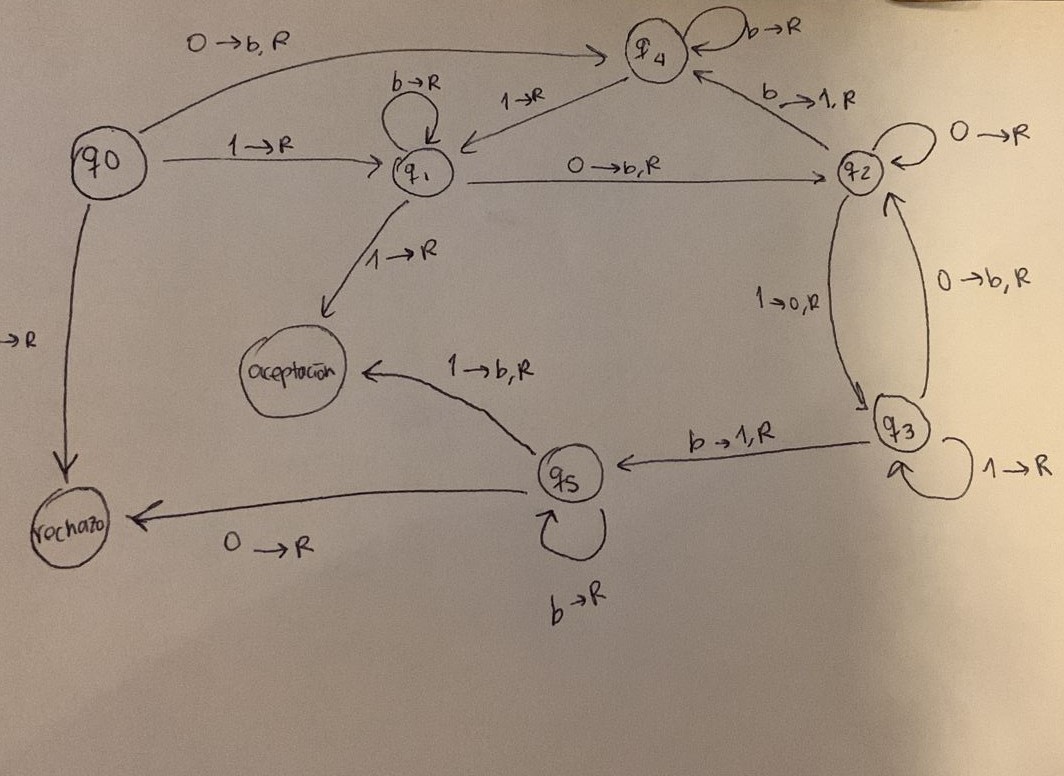 0 → b, R
q4
b → R
b → R
1 → R
b → 1, R
q0
1 → R
q1
0 → b, R
q2
0 → R
1 → R
1 → 0, R
0 → b, R
→ R
aceptación
1 → b, R
q3
b → 1, R
1 → R
q5
rechazo
0 → R
b → R